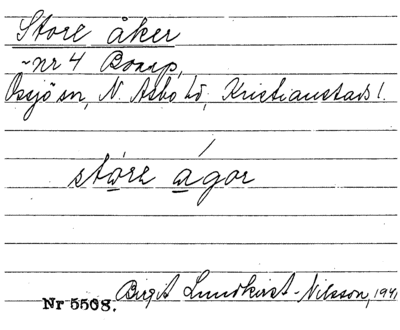 Store åker
~nr 4 Boarp,
Össjö sn, N. Åsbo hd, Kristianstads l.
störe ágor
Nr 5508. Birgit Lundkvist-Nilsson, 1941